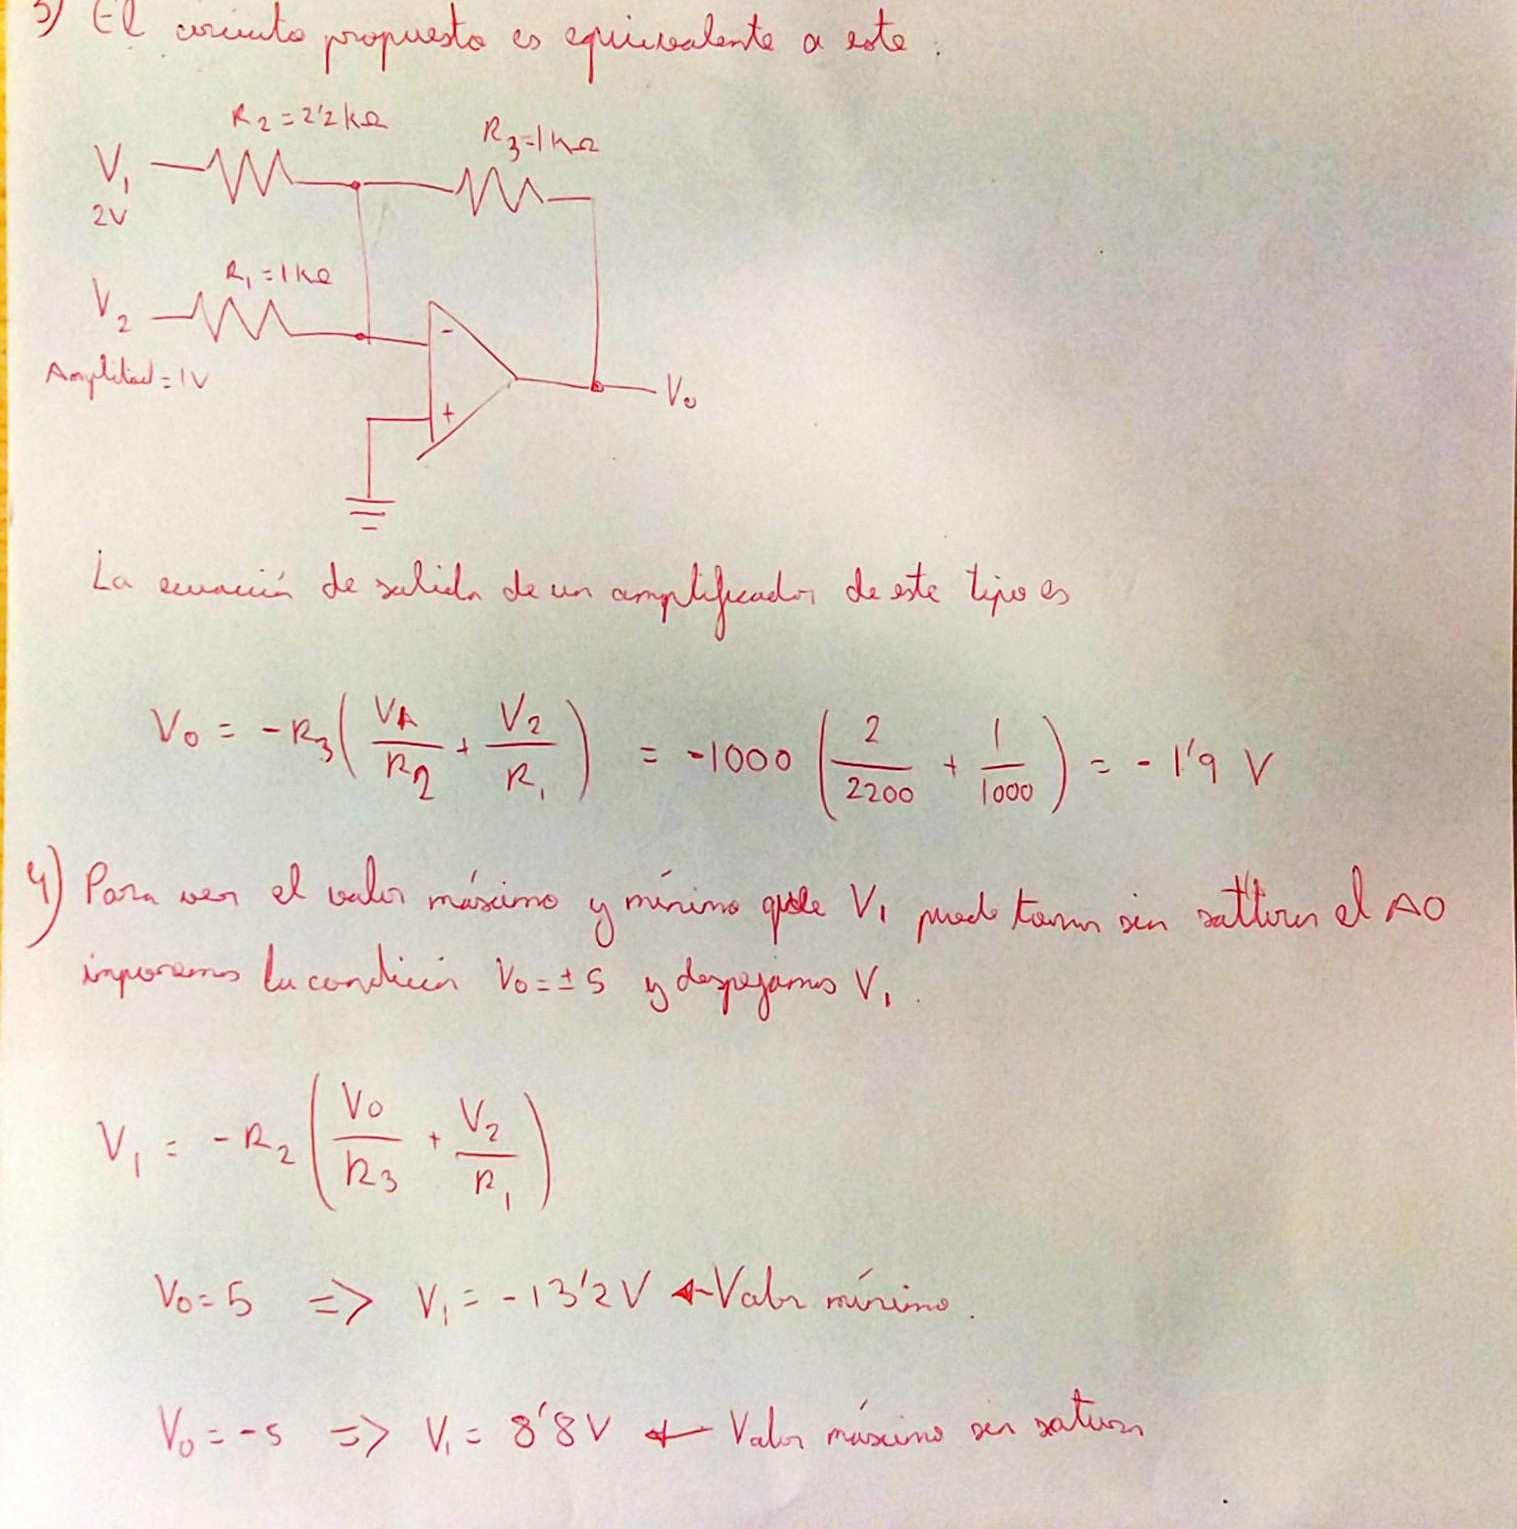 3) El circuito propuesto es equivalente a este:
R2 = 2'2 kΩ
R3 = 1kΩ
V1
2V
R1 = 1kΩ
V2
Amplitud = 1V
-
+
Vo
La ecuación de salida de un amplificador de este tipo es
Vo = -R3 (V1/R2 + V2/R1) = -1000 (2/2200 + 1/1000) = -1'9 V
4) Para ver el valor máximo y mínimo que V1 puede tomar sin saturar el AO
imponemos la condición Vo = ±5 y despejamos V1.
V1 = -R2 (Vo/R3 + V2/R1)
Vo = 5 => V1 = -13'2V ← Valor mínimo.
Vo = -5 => V1 = 8'8V ← Valor máximo sin saturar